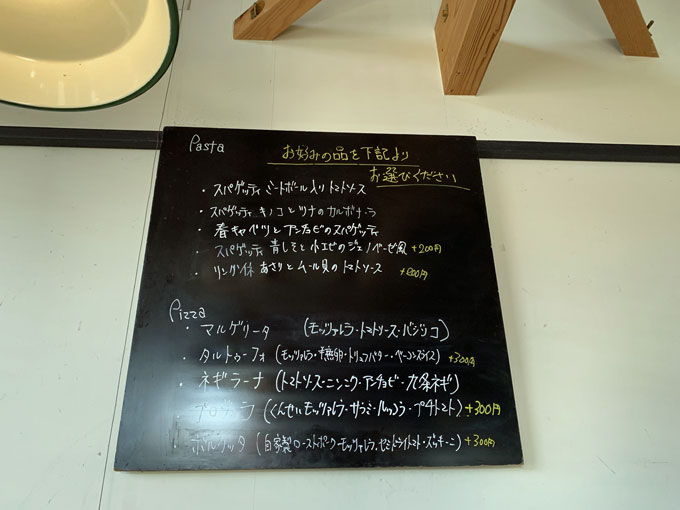 Pasta
お好みの品を下記より
お選びください
・スパゲッティ ミートボール入りトマトソース
・スパゲッティ キノコとツナのカルボナーラ
・春キャベツとアンチョビのスパゲッティ
・スパゲッティ 青しそと小エビのジェノベーゼ風 +200円
・リングイネ あさりとムール貝のトマトソース +200円
Pizza
・マルゲリータ (モッツァレラ・トマトソース・バジリコ)
・タルトゥーフォ (モッツァレラ・燻卵・トリュフバター・ベーコンスライス) +300円
・ネギラーナ (トマトソース・ニンニク・アンチョビ・九条ネギ)
・プロヴォラ (くんせいモッツァレラ・サラミ・ルッコラ・プチトマト) +300円
・ポルケッタ (自家製ローストポーク・モッツァレラ・セミドライトマト・ズッキーニ) +300円